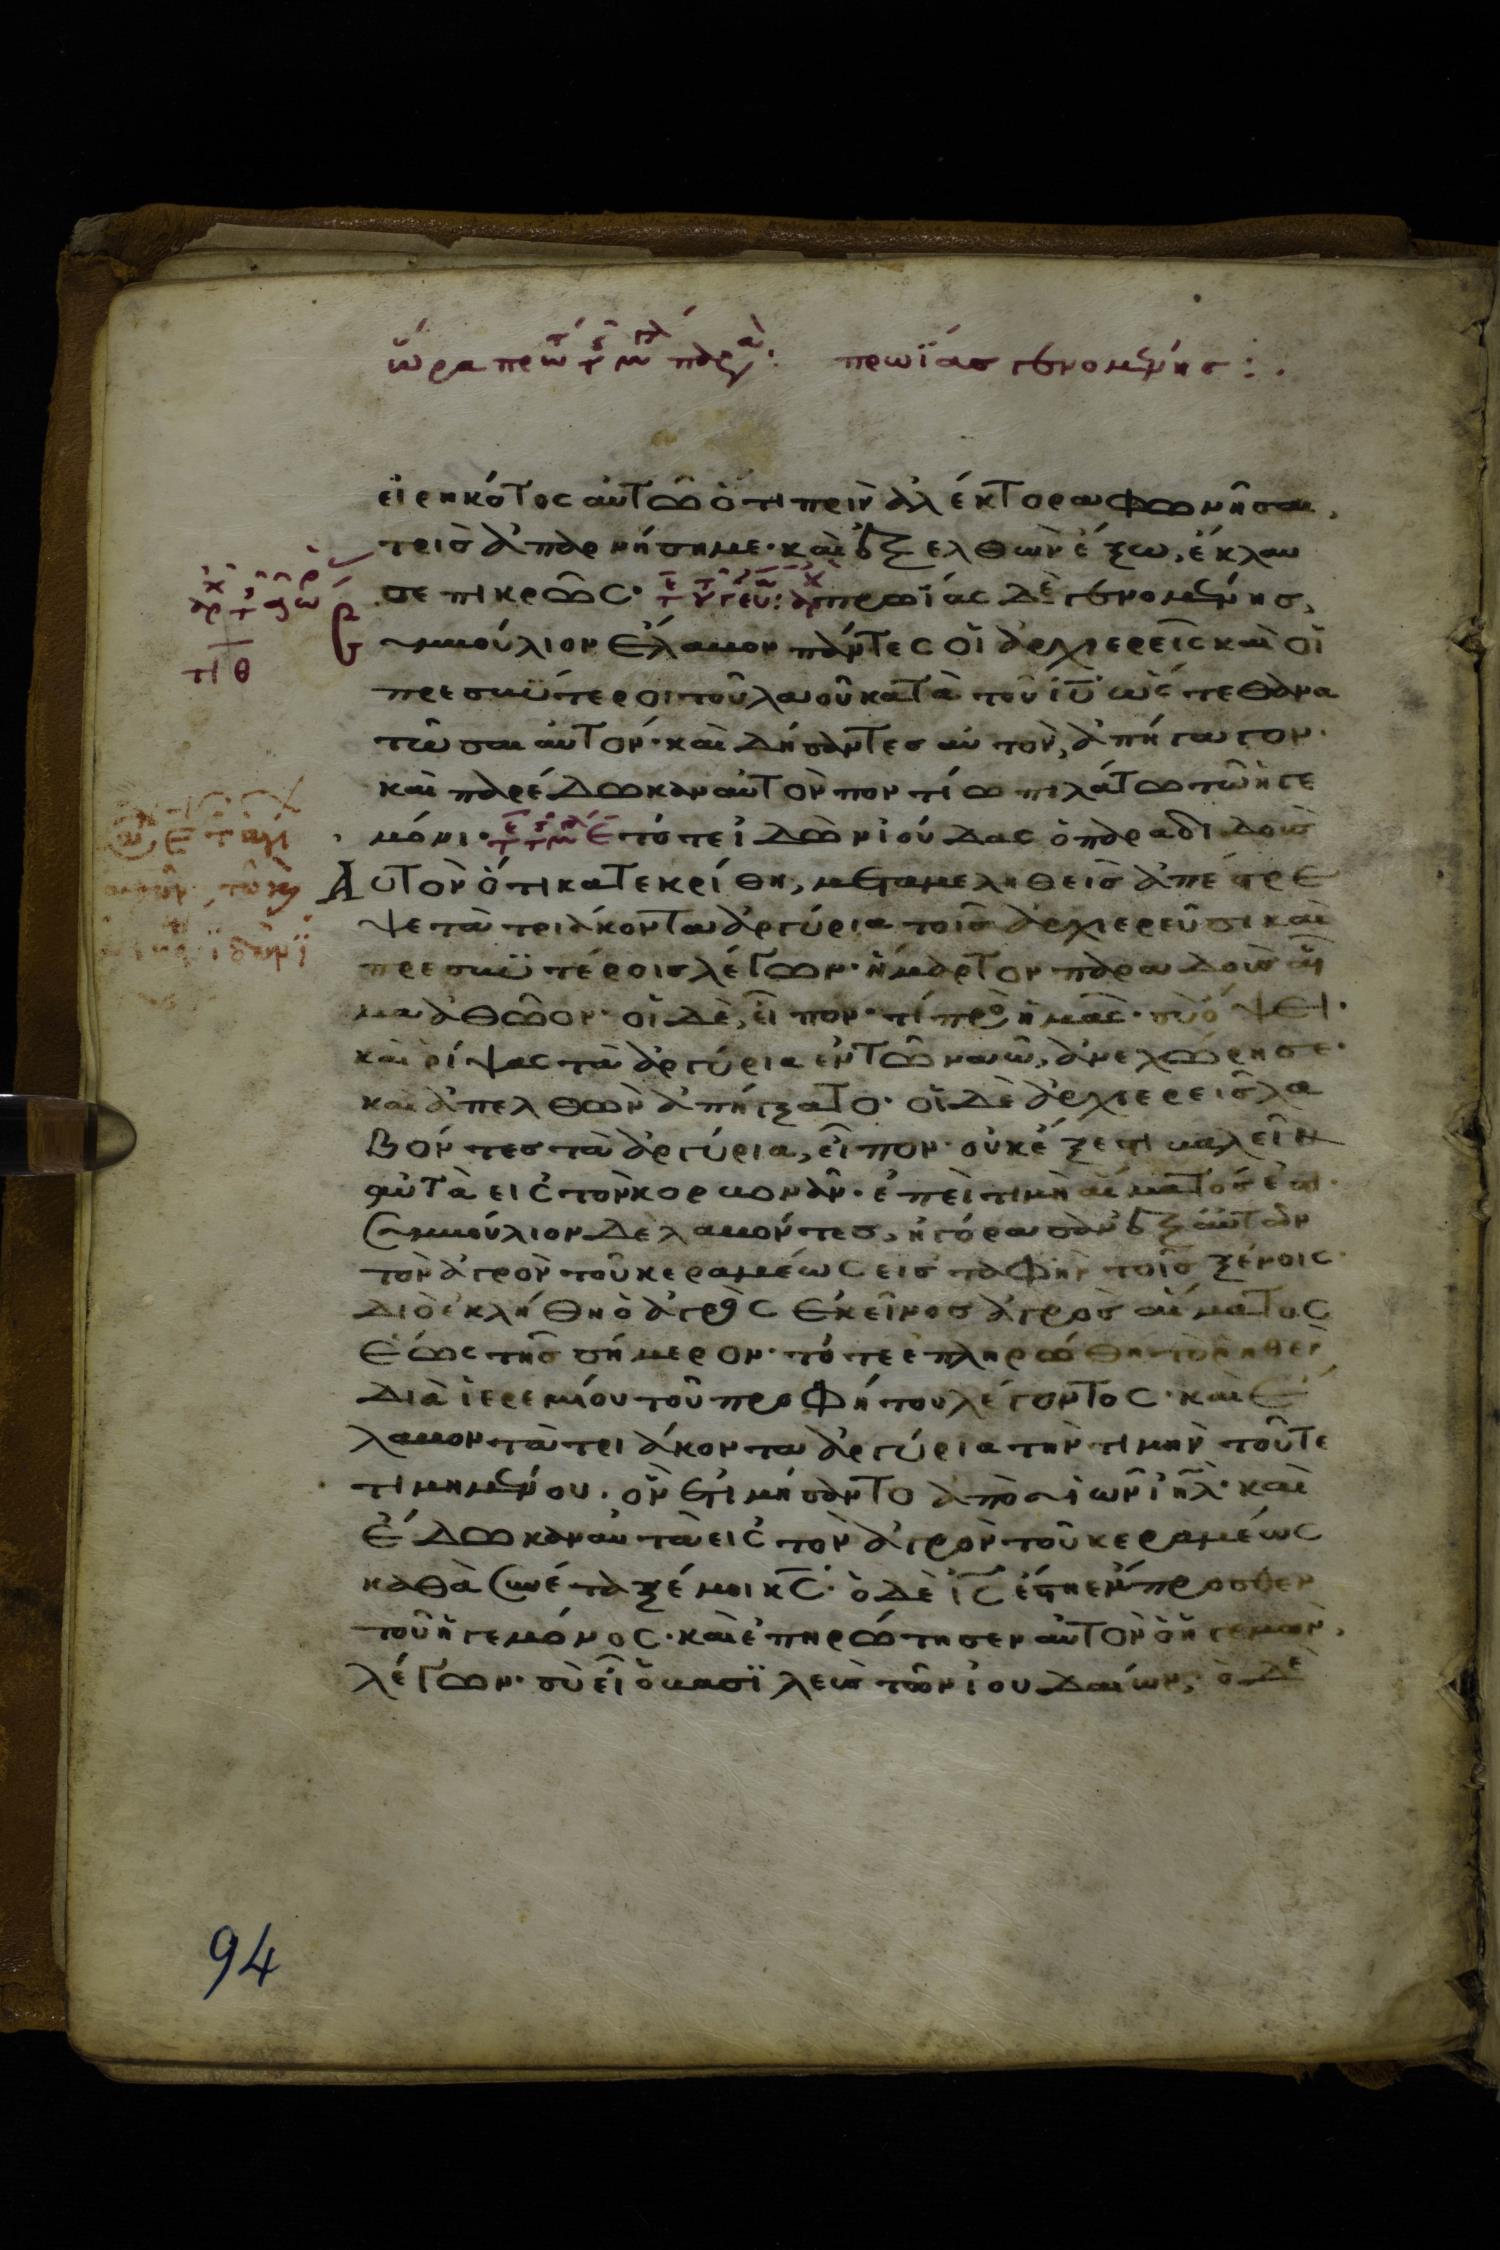 ὥρα πρώτ τ μ παρ α: πρωΐας γενομένης:.
εἰρηκότος αὐτῶ ὅτι πρὶν ἀλέκτορα φωνῆσαι,
τρὶς ἀπαρνήση με· καὶ ἐξελθὼν ἔξω, ἔκλαυ
σε πικρῶς· πρωΐας δὲ γενομένης,
συμβούλιον ἔλαβον πάντες οἱ ἀρχιερεῖς καὶ οἱ
τπθ
πρεσβύτεροι τοῦ λαοῦ κατὰ τοῦ ιυ ὥστε θανα
τῶσαι αὐτόν· καὶ δήσαντες αὐτὸν, ἀπήγαγον·
καὶ παρέδωκαν αὐτὸν ποντίω πιλάτω τῶ ἡγε
μόνι· τότε ἰδὼν ἰούδας ὁ παραδιδοὺς
Αὐτὸν ὅτι κατεκρίθη, μεταμεληθεὶς ἀπέστρε
ψε τὰ τριάκοντα ἀργύρια τοῖς ἀρχιερεῦσι καὶ
πρεσβυτέροις λέγων· ἥμαρτον παραδοὺς αἷ
μα ἀθῶον· οἱ δὲ, εἶπον· τί πρὸ ἡμᾶς· σὺ ὄψει·
καὶ ῥίψας τὰ ἀργύρια ἐν τῶ ναῶ, ἀνεχώρησε·
καὶ ἀπελθὼν ἀπήγξατο· οἱ δὲ ἀρχιερεῖς λα
βόντες τὰ ἀργύρια, εἶπον· οὐκ ἔξεστι βαλεῖν
αὐτὰ εἰς τὸν κορβονᾶν· ἐπεὶ τιμὴ αἵματός ἐστι·
συμβούλιον δὲ λαβόντες, ἠγόρασαν ἐξ αὐτῶν
τὸν ἀγρὸν τοῦ κεραμέως εἰς ταφὴν τοῖς ξένοις·
διὸ ἐκλήθη ὁ ἀγρὸς ἐκεῖνος ἀγρὸς αἵματος
ἕως τῆς σήμερον· τότε ἐπληρώθη τὸ ῥηθὲν
διὰ ἱερεμίου τοῦ προφήτου λέγοντος· καὶ ἔ
λαβον τὰ τριάκοντα ἀργύρια τὴν τιμὴν τοῦ τε
τιμημένου· ὃν ἐτιμήσαντο ἀπὸ υἱῶν ιηλ· καὶ
ἔδωκαν αὐτὰ εἰς τὸν ἀγρὸν τοῦ κεραμέως
καθὰ συνέταξέ μοι κς· ὁ δὲ ις ἔστη ἔμπροσθεν
τοῦ ἡγεμόνος· καὶ ἐπηρώτησεν αὐτὸν ὁ ἡγεμὼν,
λέγων· σὺ εἶ ὁ βασιλεὺς τῶν ἰουδαίων; ὁ δὲ
94